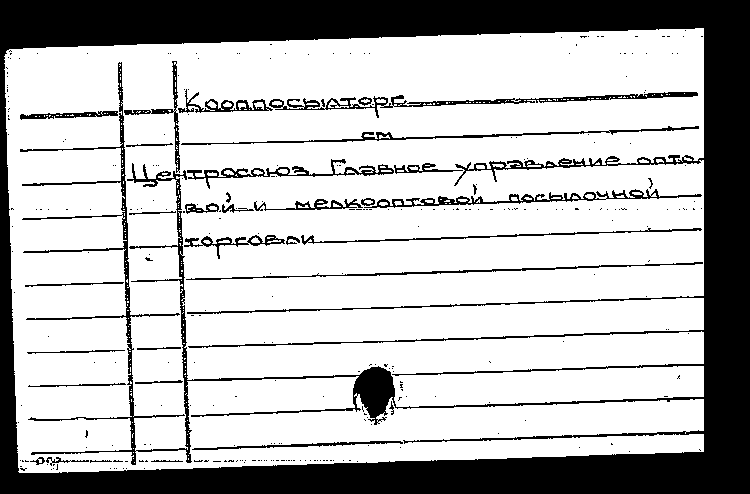 Коопосылторг
см
Центросоюз. Главное управление опто-
вой и мелкооптовой посылочной
торговли